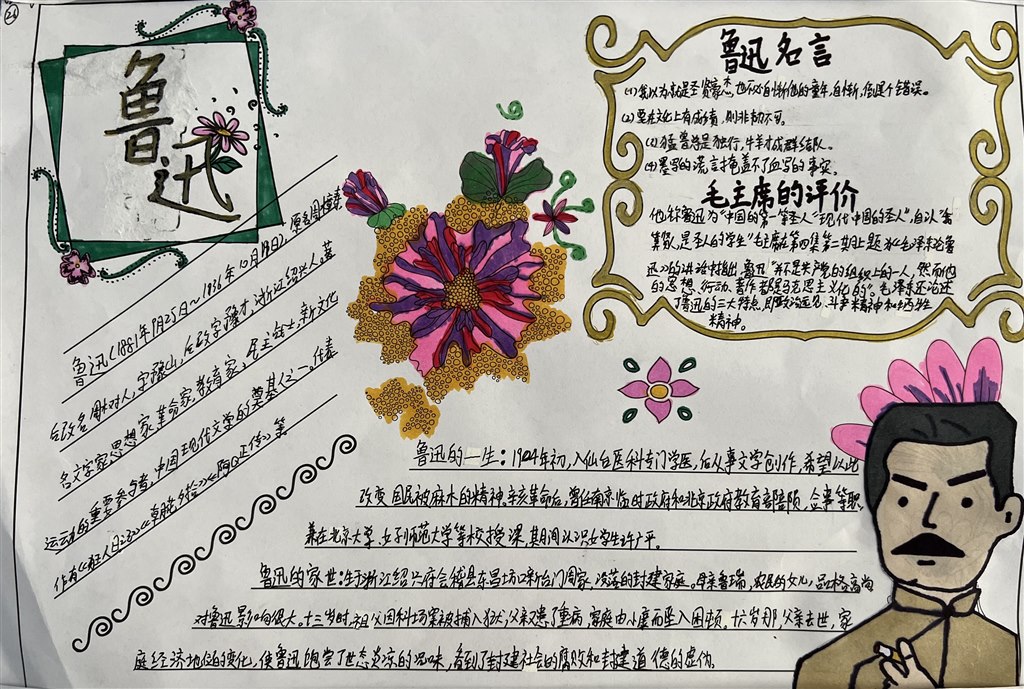 26
鲁迅
鲁迅(1881年9月25日～1936年10月19日)，原名周樟寿
后改名周树人，字豫山，后改字豫才，浙江绍兴人。著
名文学家、思想家、革命家、教育家、民主战士，新文化
运动的重要参与者，中国现代文学的奠基人之一。代表
作有《狂人日记》《朝花夕拾》《阿Q正传》等
鲁迅名言
(1)我以为就是圣贤豪杰，也不必自惭他的童年，自惭，倒是个错误。
(2)要在文化上有成绩，则非韧不可。
(3)猛兽总是独行，牛羊才成群结队。
(4)墨写的谎言掩盖不了血写的事实。
毛主席的评价
他称鲁迅为"中国的第一等圣人""现代中国的圣人"，自认"
算贤人，是圣人的学生"毛主席在第四集第二期上题为《毛泽东论鲁
迅》的讲话中指出，鲁迅"并不是共产党的组织上的一人，然而他
的思想、行动、著作都是马克思主义化的"。毛泽东还论述
了鲁迅的三大特点，即政治远见、斗争精神和牺牲
精神。
鲁迅的一生：1904年初，入仙台医科专门学医，后从事文学创作，希望以此
改变国民被麻木的精神。辛亥革命后，曾任南京临时政府和北京政府教育部部员、佥事等职，
兼在北京大学、女子师范大学等校授课，其间认识女学生许广平。
鲁迅的家世：生于浙江绍兴府会稽县东昌坊口新台门周家，没落的封建家庭。母亲鲁瑞，农民的女儿，品格高尚
对鲁迅影响很大。十三岁时，祖父因科场案被捕入狱，父亲患了重病，家庭由小康而坠入困顿。十六岁那，父亲去世，家
庭经济地位的变化，使鲁迅饱尝了世态炎凉的况味，看到了封建社会的腐败和封建道德的虚伪。